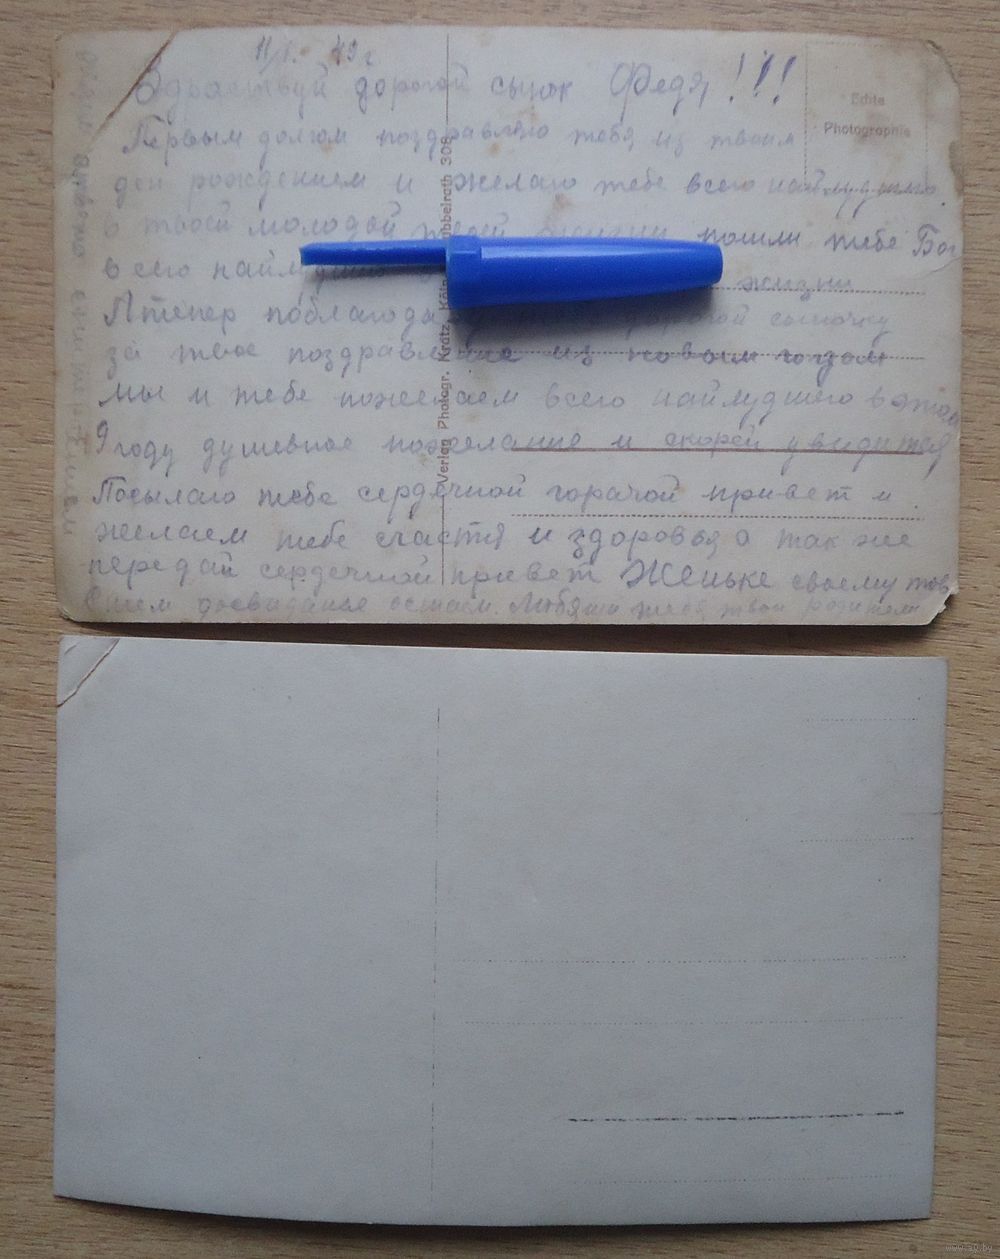 11/I. 49 г
Здраствуй дорогой сынок Федя!!!
Первым долгом поздравляю тебя из твоим
ден рождением и желаю тебе всего найлудшего
в твоей молодой жизни пошли тебе Бог
всего найлудшего жизни
А тепер поблагода дорогой сыночку
за твое поздравление из новым годом
мы и тебе пожелаем всего найлудшего в этом
9 году душевное пожелание и скорей увидется
Посылаю тебе сердечной горячой привет и
желаем тебе счастя и здоровья а так же
передай сердечной привет Женьке своему тов
Сним досвидание остаем. Любящи тебя твои родители
Echte
Photographie
Verlag Photogr. Kratz, Köln 308